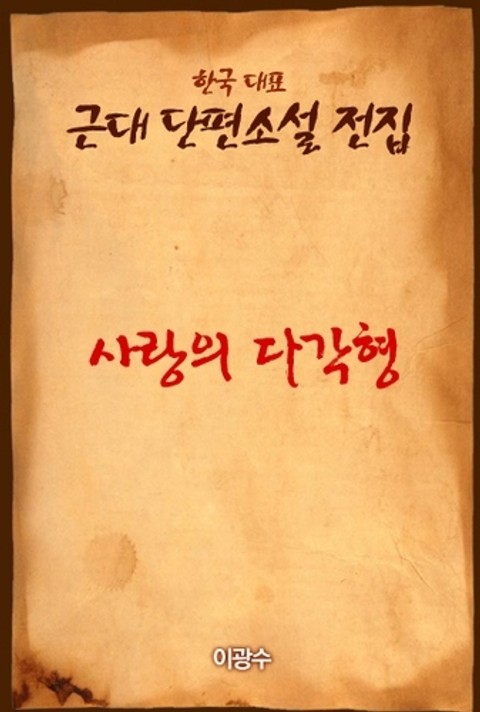 한국 대표
근대 단편소설 전집
사랑의 다각형
이광수